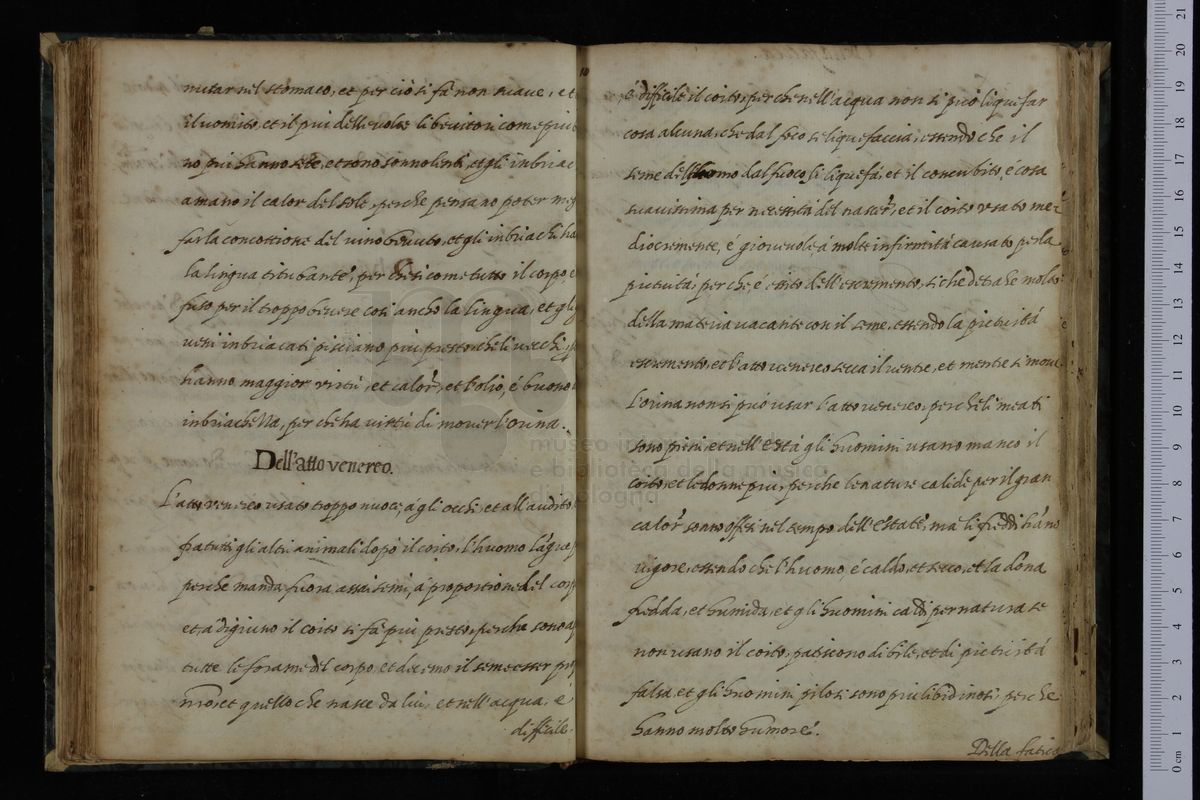 nutar nel stomaco, et per ciò si fà non suave, et
il vomito, et il più delle volte li bevitori come più
no più hanno sete, et sono sonnolenti, et gli inbriac
amano il calor del sole, perche pensano poter me
far la concottione del vino bevuto, et gli inbriachi ha
la lingua titubante, perche si come tutto il corpo, è
fuso per il troppo bevere cosi ancho la lingua, et gli
inbriacati pisciano più presto, che li vecchi,
hanno maggior virtù, et calor, et l'olio, è buono
inbriachella, perche ha virtù di mover l'orina.
Dell'atto venereo.
L'atto venereo usato troppo nuoce, à gli occhi, et all'audito
fra tutti gli altri animali dopò il coito, l'huomo
perche manda fuora assai semi, à proportione del cor
et, a digiuno il coito si fà più presto, perche sono a
tutte le forame del corpo, et dicemo il seme esser pr
et quello che nasce da lui, et nell'acqua, è
difficile.
10
è difficile il coito, perche nell'acqua non si può liquefar
cosa alcuna, che dal foco se liquefaccia, essendo che il
seme dell'huomo dal fuoco si liquefà, et il concubito, è cosa
suavissima per necessità del nascer, et il coito usato me=
diocremente, è giovevole, à molte infirmità causato per la
pituità, perche è exito dell'escremento, si che detrahe molto
della materia vacante con il seme, essendo la pietuità
escremento, et l'atto venereo secca il ventre, et mentre si move
l'orina non si può usar l'atto venereo, perche li meati
sono pieni, et nell'està gli huomini usano manco il
coito, et le donne più, perche le nature calide per il gran
calor sono offesi nel tempo dell'estate, ma li freddi hāno
vigore, essendo che l'huomo, è caldo, et secco, et la dōna
fredda, et humida, et gli huomini caldi per natura se
non usano il coito, patiscono di bile, et di pietuità
falsa, et gli huomini pilosi sono più libidinosi, perche
hanno molto humore.
Della fatica
museo internazionale
e biblioteca della musica
di bologna
0 cm 1 2 3 4 5 6 7 8 9 10 11 12 13 14 15 16 17 18 19 20 21